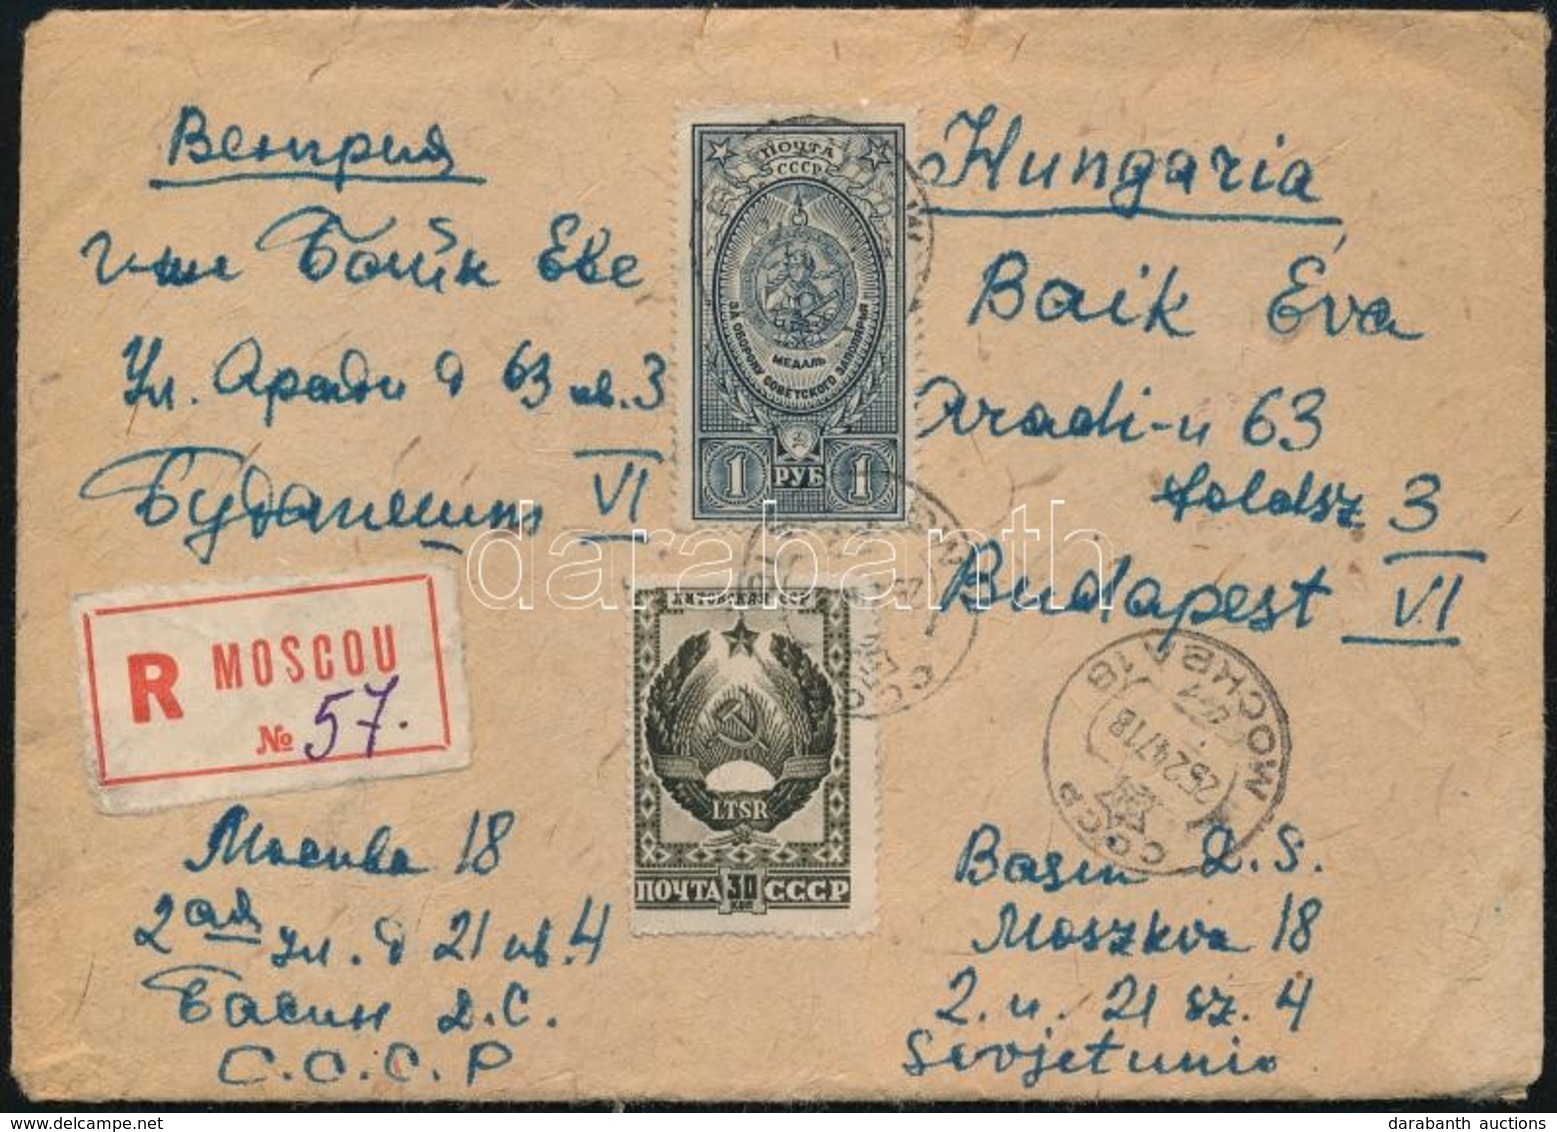 Венгрия
г-ше Бойк Еве
Ул. Аради д 63 кв. 3
Будапешт VI
ПОЧТА
СССР
МЕДАЛЬ
ЗА ОБОРОНУ СОВЕТСКОГО ЗАПОЛЯРЬЯ
1 РУБ 1
Hungaria
Baik Éva
Aradi-u 63
foldsz 3
Budapest VI
darabanth
R MOSCOU
№ 57.
ЛИТОВСКАЯ ССР
LTSR
ПОЧТА 30 СССР
МОСКВА 18
25.2.47.18
СССР
Москва 18
2ая ул. д 21 кв. 4
Басин Д.С.
С.С.С.Р
Basin D.S.
Moszkva 18
2. u. 21 sz. 4
Sovjetunio
darabanth auctions